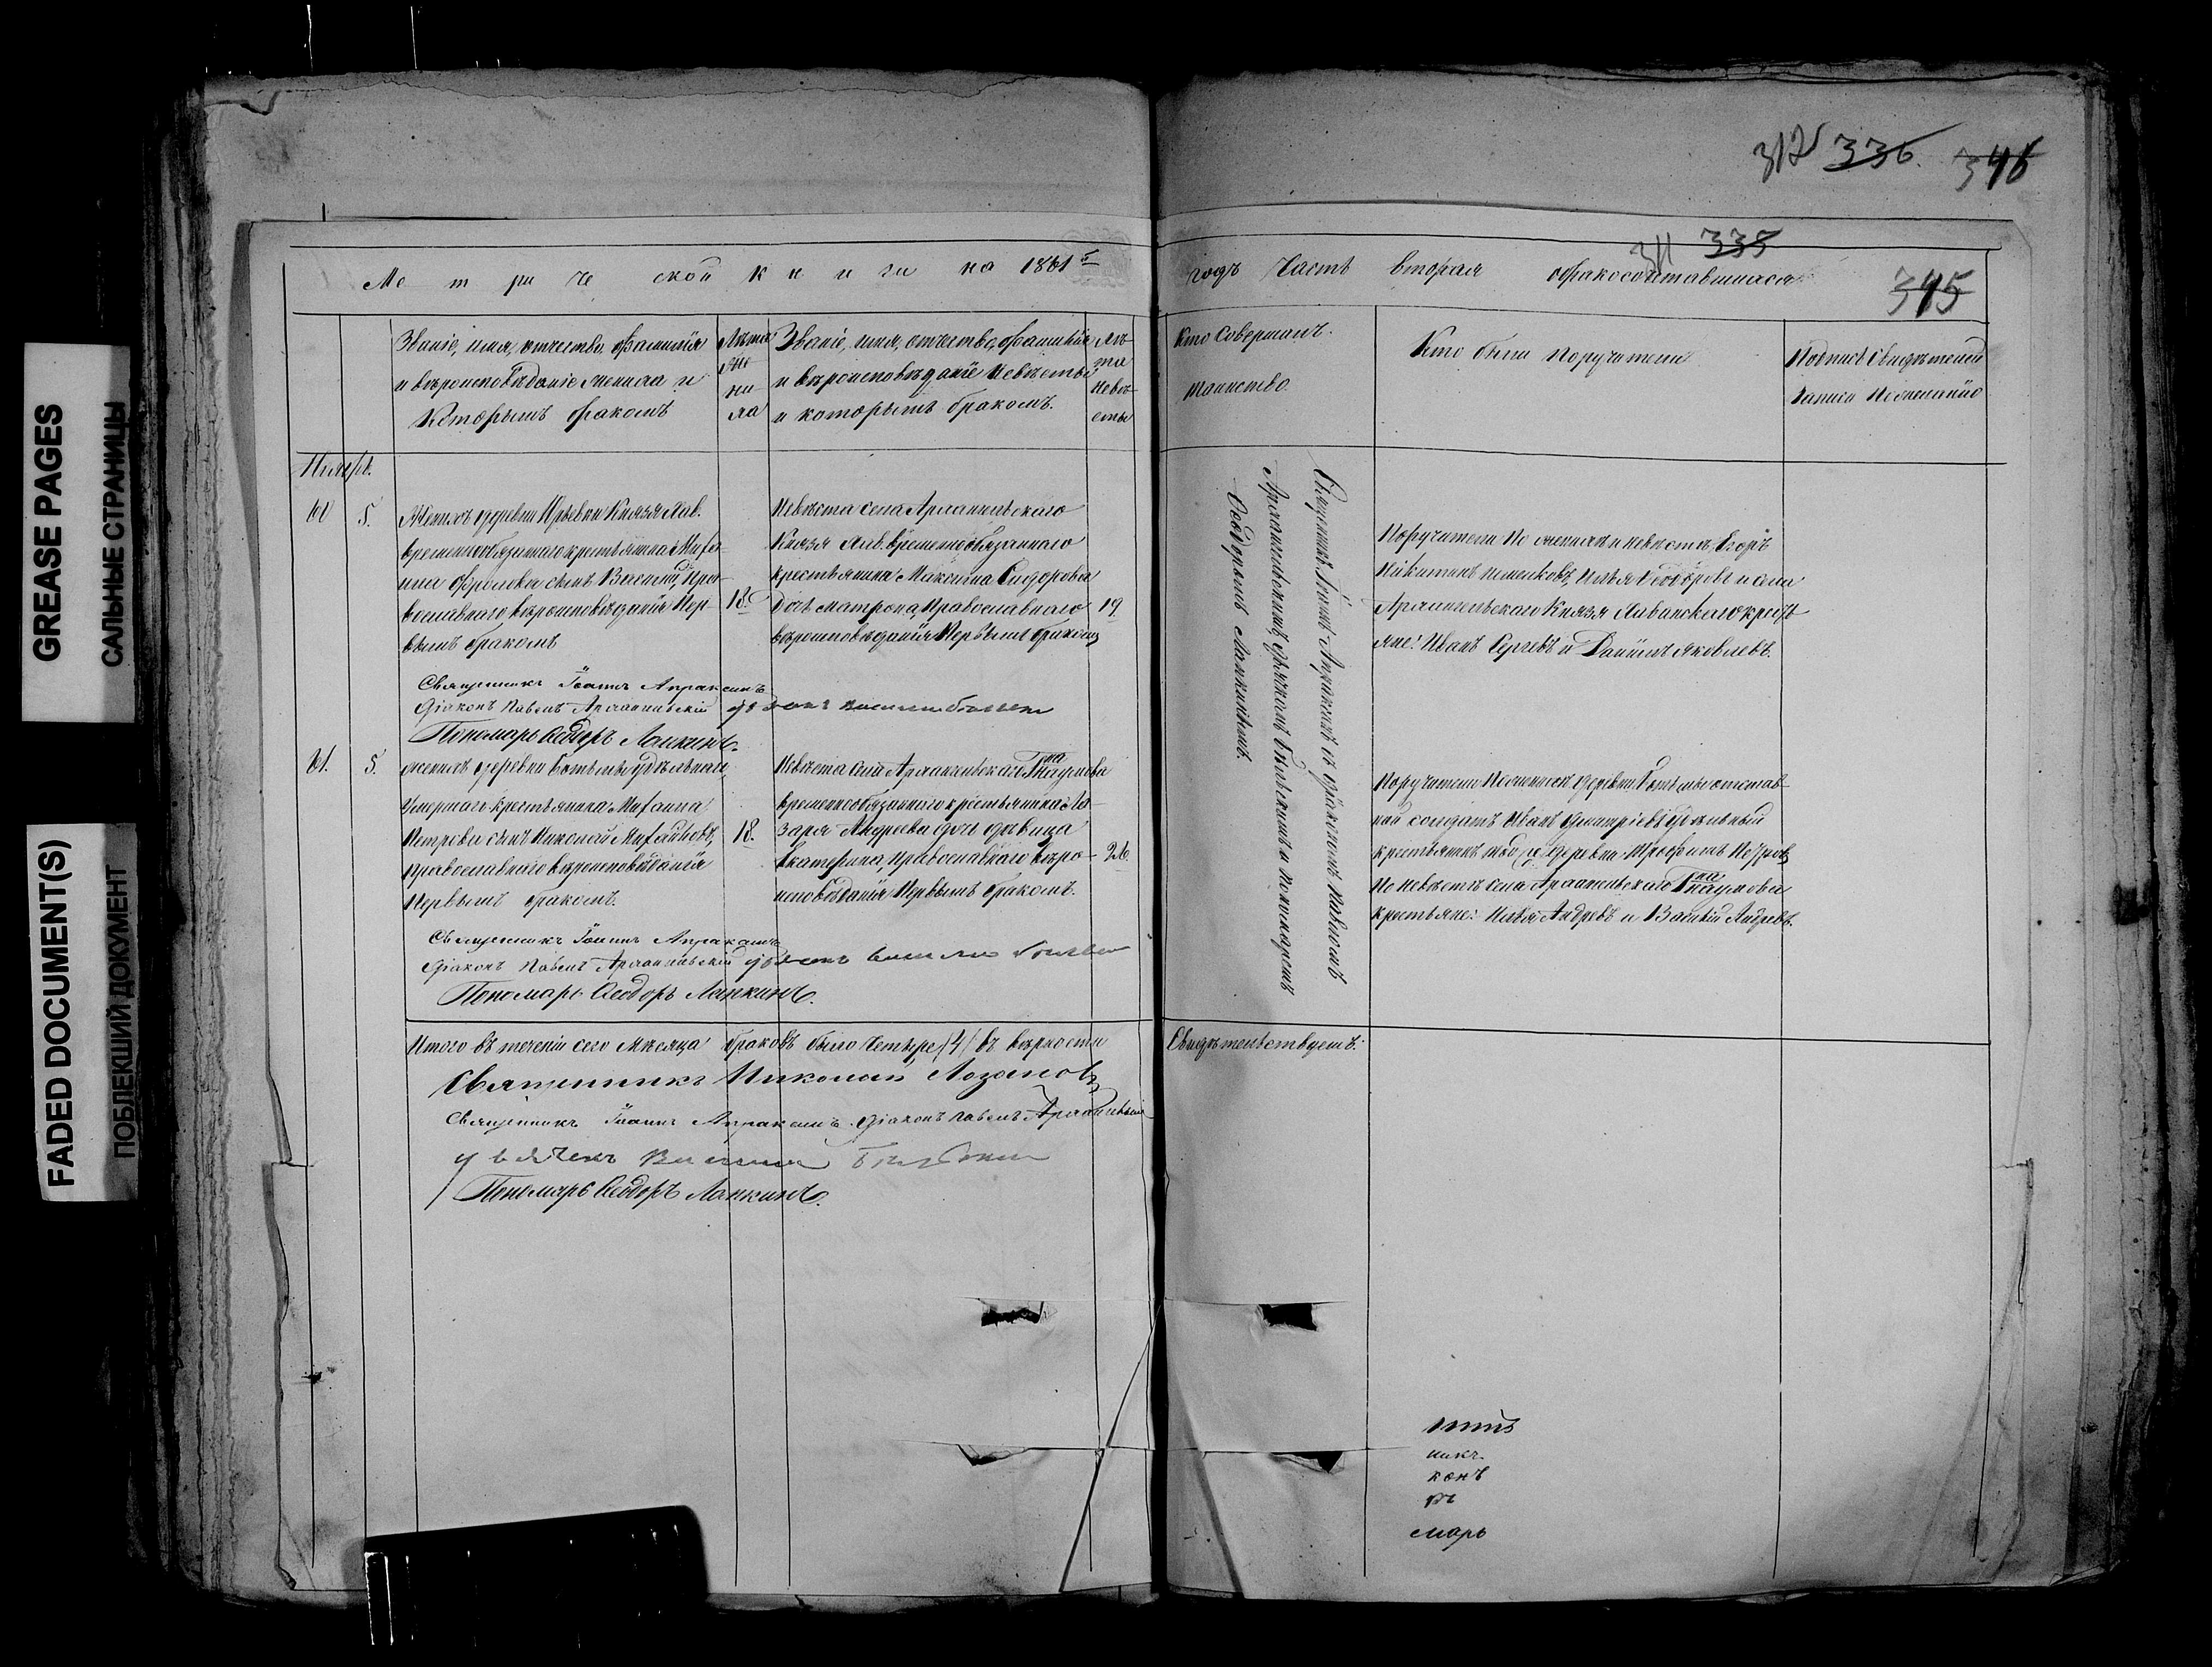 GREASE PAGES
САЛЬНЫЕ СТРАНИЦЫ
FADED DOCUMENT(S)
ПОБЛЕКШИЙ ДОКУМЕНТ
312 336. 346
311 335
345
Метрической книги на 1861й
годъ Часть вторая о бракосочетавшихся
Званіе, имя, отчество, фамилія
и вѣроисповѣданіе жениха и
Которымъ бракомъ
Лѣта
же
ни
ха
Званіе, имя, отчество, фамилія
и вѣроисповѣданіе невѣсты
и которымъ бракомъ.
Лѣ-
та
невѣ-
сты
Кто Совершалъ
таинство.
Кто были поручители
Подпись Свидѣтелей
записи по желанію
Ноябрь.
60
5.
Женихъ деревни Князя Лив.
временнообязаннаго крестьянина Миха-
ила Фролова сынъ Василій, Пра-
вославнаго вѣроисповѣданія Пер-
вымъ бракомъ
18.
Невѣста села Архангельскаго
Князя Лив. временнообязаннаго
крестьянина Максима Сидорова
дочь Матрона, Православнаго
вѣроисповѣданія Первымъ бракомъ
19.
Священникъ Іоаннъ Апраксинъ съ діакономъ Павломъ
Архангельскимъ, дьячкомъ и пономаремъ
Ѳеодоромъ Лапкинымъ.
Поручители по женихѣ и невѣстѣ, Егоръ
Никитинъ Илья и села
Архангельскаго Князя Ливанскаго кресть
яне: Иванъ Сергѣевъ и Даніилъ Яковлевъ.
Священникъ Іоаннъ Апраксинъ
Діаконъ Павелъ Архангельскій
Пономарь Ѳеодоръ Лапкинъ.
61.
5.
женихъ деревни удѣльнаго
умершаго крестьянина Михаила
Петрова сынъ Николай Михайловъ,
православнаго вѣроисповѣданія
Первымъ бракомъ.
18.
Невѣста села Архангельскаго Гна Наумова
временнообязаннаго крестьянина Ла-
заря Андреева дочь дѣвица
Екатерина, православнаго вѣро-
исповѣданія Первымъ бракомъ.
26.
Поручители по женихѣ деревни отстав-
ной солдатъ Иванъ Дмитріевъ удѣльный
крестьянинъ той же деревни Трофимъ Петровъ
По невѣстѣ села Архангельскаго Гна Наумова
крестьяне: Илья Андреевъ и Василій Андреевъ.
Священникъ Іоаннъ Апраксинъ
Діаконъ Павелъ Архангельскій
Пономарь Ѳеодоръ Лапкинъ.
Итого въ теченіи сего Мѣсяца браковъ было Четыре /4/ въ вѣрности
Свидѣтельствуемъ:
Священникъ Николай Лозановъ
Священникъ Іоаннъ Апраксинъ. Діаконъ Павелъ Архангельскій
Пономарь Ѳеодоръ Лапкинъ.
никъ
конъ
марь